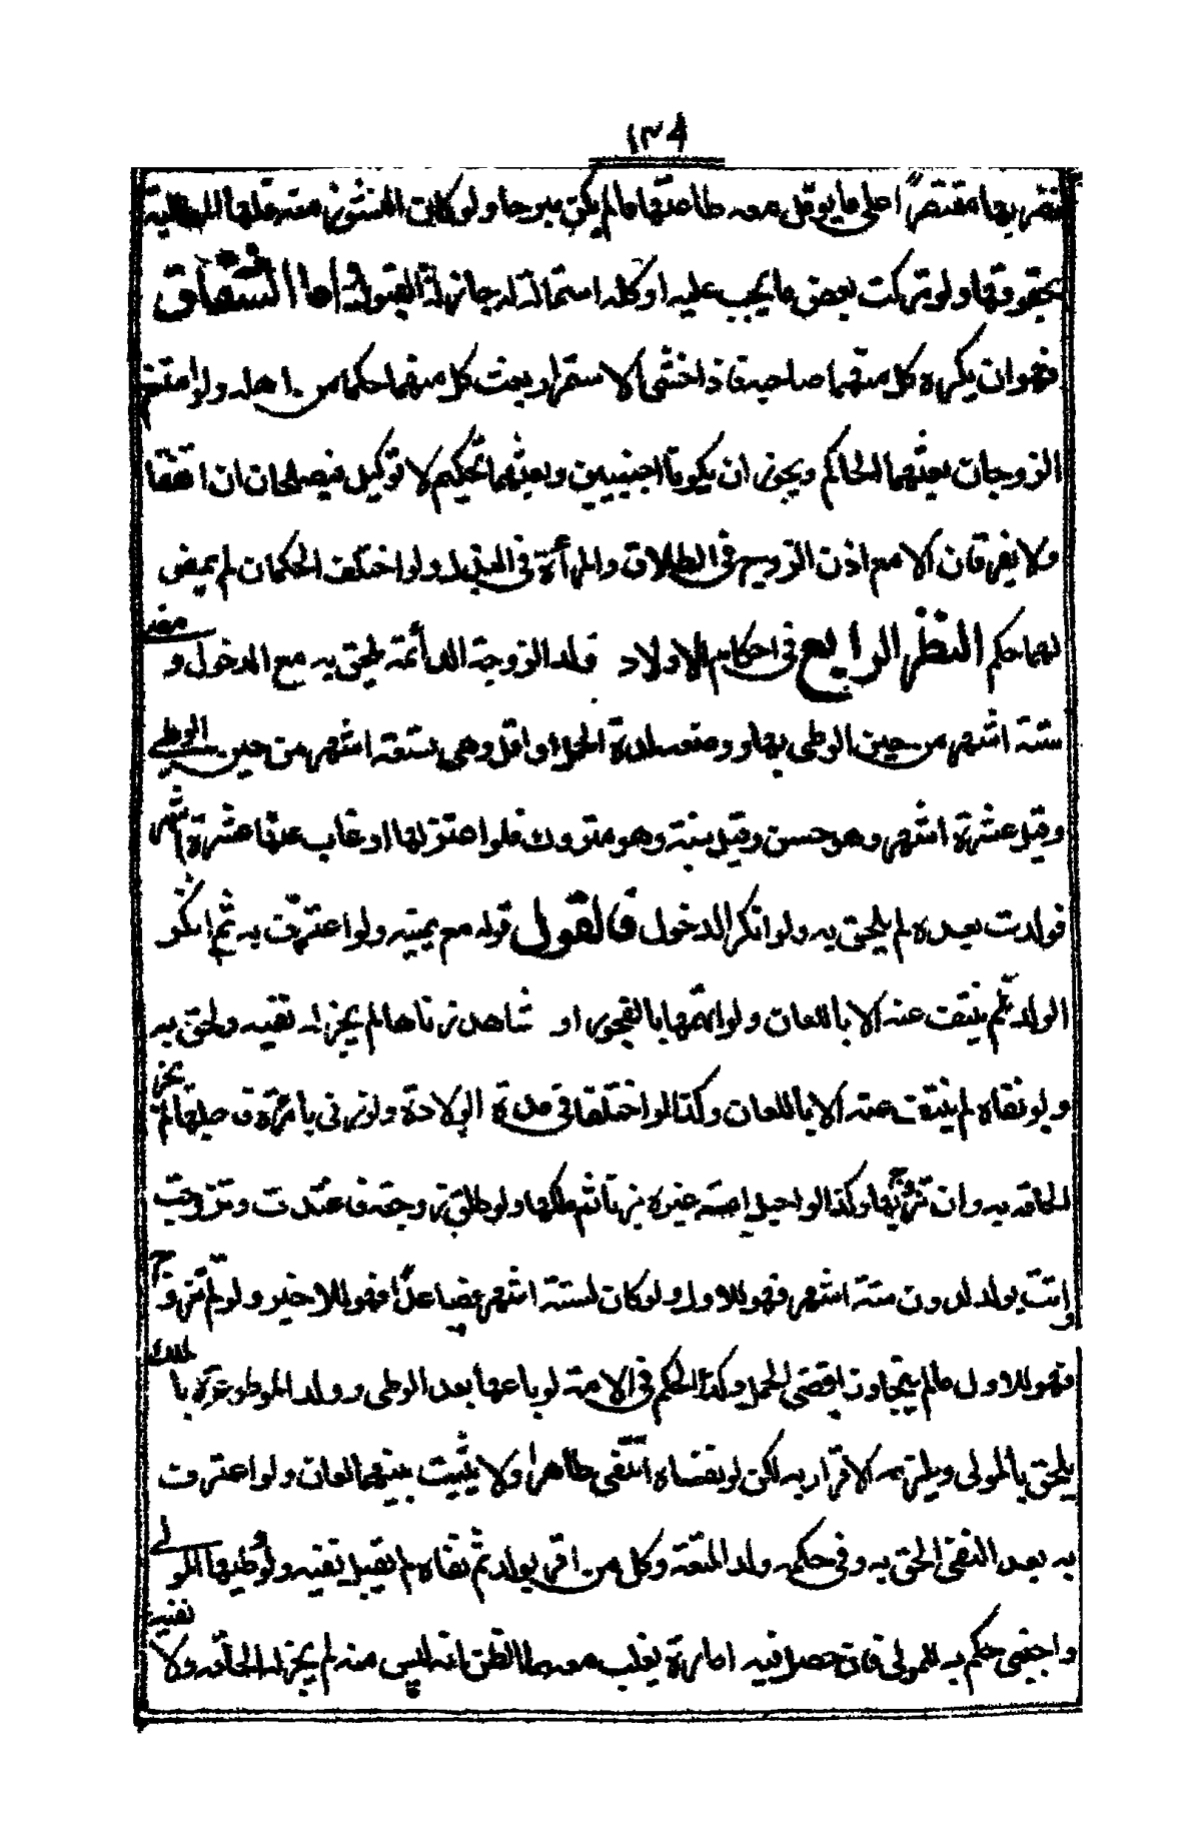 ١٣٩
ضربها مقتصرا على ما يؤمل معه طاعتها ما لم يكن مبرحا ولو كان النشوز منه فلها المطالبة
بحقوقها ولو تركت بعض ما يجب عليه او كله استمالة له جاز له القبول اما الشقاق
فهو ان يكره كل منهما صاحبه فاذا خشى الاستمرار بعث كل منهما حكما من اهله ولو امتنع
الزوجان بعثهما الحاكم ويجوز ان يكونا اجنبيين وبعثهما تحكيم لا توكيل فيصلحان ان اتفقا
ولا يفرقان الا مع اذن الزوج فى الطلاق والمرأة فى البذل ولو اختلف الحكمان لم يمض
لهما حكم النظر الرابع فى احكام الاولاد ولد الزوجة الدائمة يلحق به مع الدخول و مضى
ستة اشهر من حين الوطى بها ووضعه لمدة الحمل او اقل وهى تسعة اشهر من حين الوطى
وقيل عشرة اشهر وهو حسن وقيل سنة وهو متروك فلو اعتزلها او غاب عنها عشرة اشهر
فولدت بعده لم يلحق به ولو انكر الدخول فالقول قوله مع يمينه ولو اعترف به ثم انكر
الولد لم ينتف عنه الا باللعان ولو اتهمها بالفجور او شاهد زناها لم يجز له نفيه ولحق به
ولو نفاه لم ينتف عنه الا باللعان وكذا لو اختلفا فى مدة الولادة ولو زنى بامرأة فحبلها لم يجز
الحاقه به وان تزوج بها وكذا لو احبل امة غيره بزنا ثم ملكها ولو طلق زوجته فاعتدت وتزوجت
واتت بولد لدون ستة اشهر فهو للاول ولو كان لستة اشهر فصاعدا فهو للاخير ولو لم تتزوج
فهو للاول ما لم يتجاوز اقصى الحمل وكذا الحكم فى الامة لو باعها بعد الوطى وولد الموطوءة بالملك
يلحق بالمولى ويلزمه الاقرار به لكن لو نفاه انتفى ظاهرا ولا يثبت بينهما لعان ولو اعترف
به بعد النفى الحق به وفى حكمه ولد المتعة وكل من اقر بولد ثم نفاه لم يقبل نفيه ولو وطيها المولى
واجنبى حكم به للمولى فان حصل فيه امارة يغلب معها الظن انه ليس منه لم يجز له الحاقه ولا نفيه